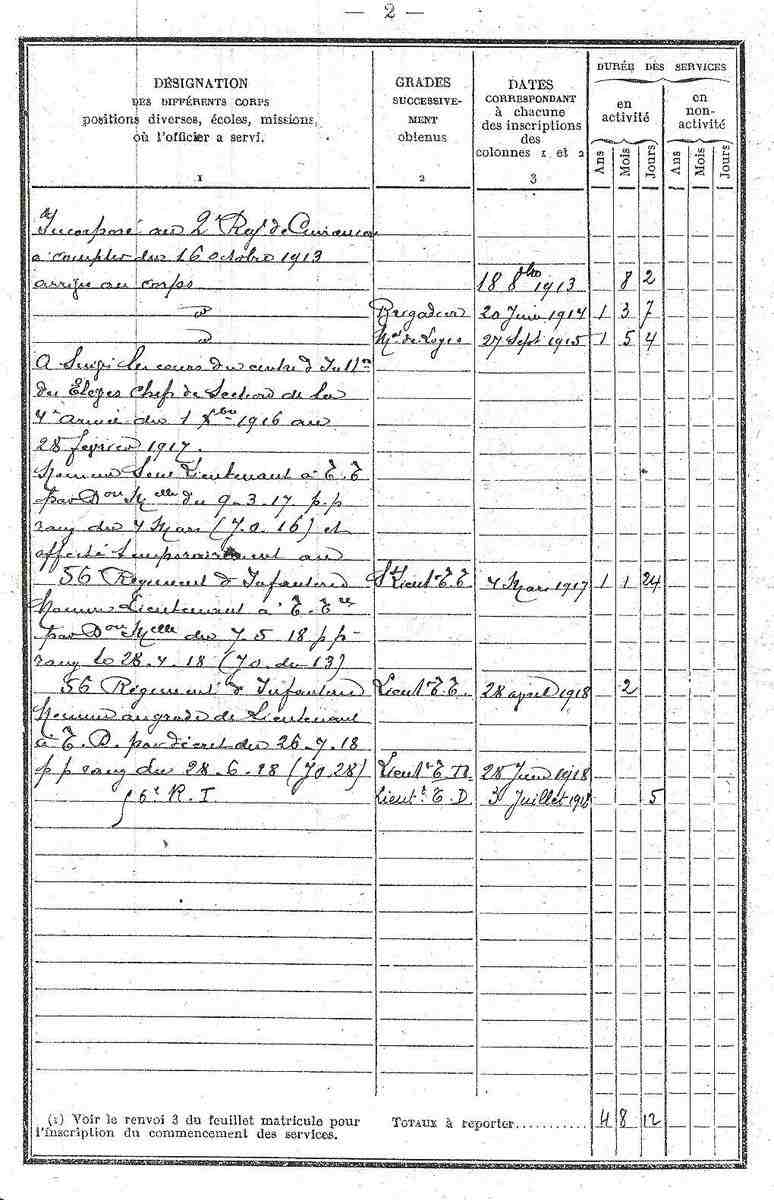 — 2 —
DÉSIGNATION
DES DIFFÉRENTS CORPS
positions diverses, écoles, missions,
où l'officier a servi.
1
GRADES
SUCCESSIVE-
MENT
obtenus
2
DATES
CORRESPONDANT
à chacune
des inscriptions
des
colonnes 1 et 2
3
DURÉE DES SERVICES
en
activité
en
non-
activité
Ans Mois Jours Ans Mois Jours
Incorporé au 2e Regt de Cuirassiers
à compter du 16 octobre 1913
arrivé au corps 18 8bre 1913 8 2
d° Brigadier 20 Juin 1914 1 3 7
d° Mal de Logis 27 Sept 1915 1 5 4
A Suivi les cours du centre d'
des Elèves Chef de Section de la
4e armée du 1 Xbre 1916 au
28 février 1917.
Nommé Sous Lieutenant à T.T
par Don Melle du 9.3.17 p.p
rang du 4 Mars (J.O.16) et
affecté temporairement au
56 Régiment d'Infanterie St Lieut T.T 4 Mars 1917 1 1 24
Nommé Lieutenant à T.Tre
par Don Melle du 7.5.18 pp
rang le 28.4.18 (JO du 13)
56 Régiment d'Infanterie Lieut T.T. 28 april 1918 2
Nommé au grade de Lieutenant
à T.D. par décret du 26.7.18
p p rang du 28.6.18 (JO 28) Lieut T.D. 28 Juin 1918
56e R.I. Lieutt T.D 3 Juillet 1918 5
(1) Voir le renvoi 3 du feuillet matricule pour
l'inscription du commencement des services.
TOTAUX à reporter........... 4 8 12